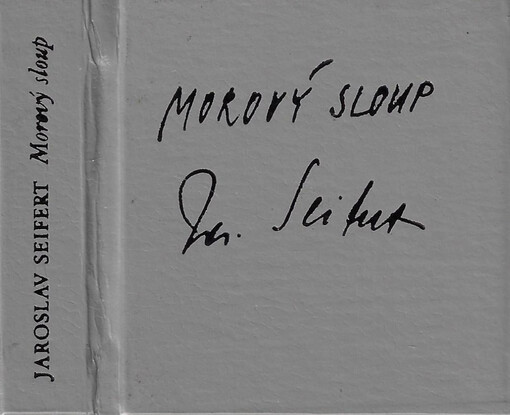 JAROSLAV SEIFERT Morový sloup
MOROVÝ SLOUP
Jar. Seifert